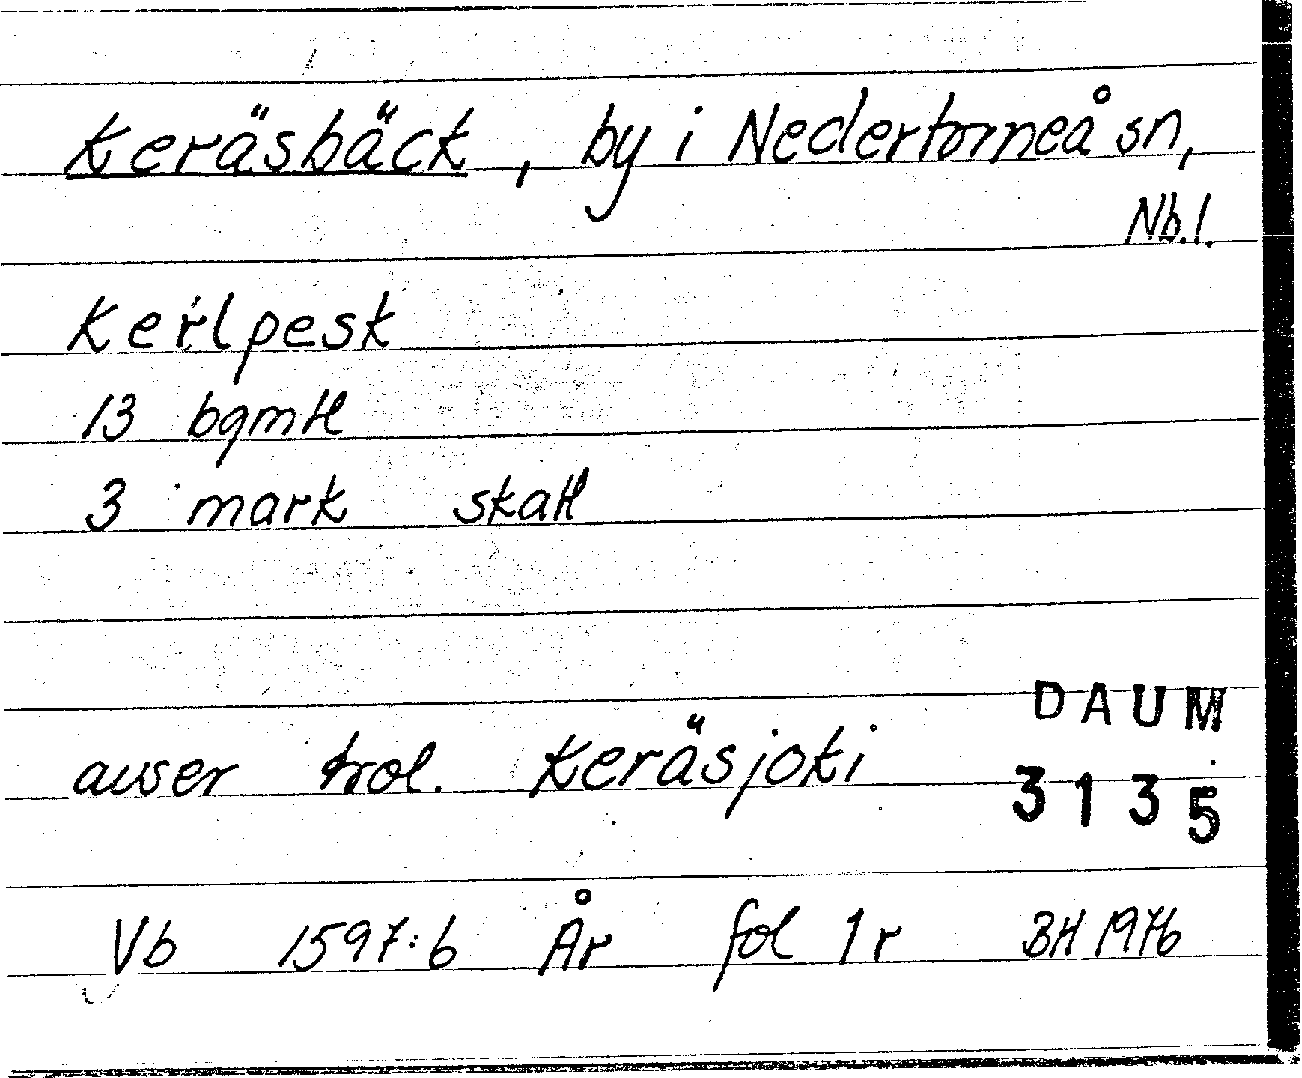 Keräsbäck, by i Nedertorneå sn,
Nb.l.
Kerlpesk
13 bgmtl
3 mark skatt
avser trol. Keräsjoki
DAUM
3135
Vb 1597:6 År fol 1r BH 1976